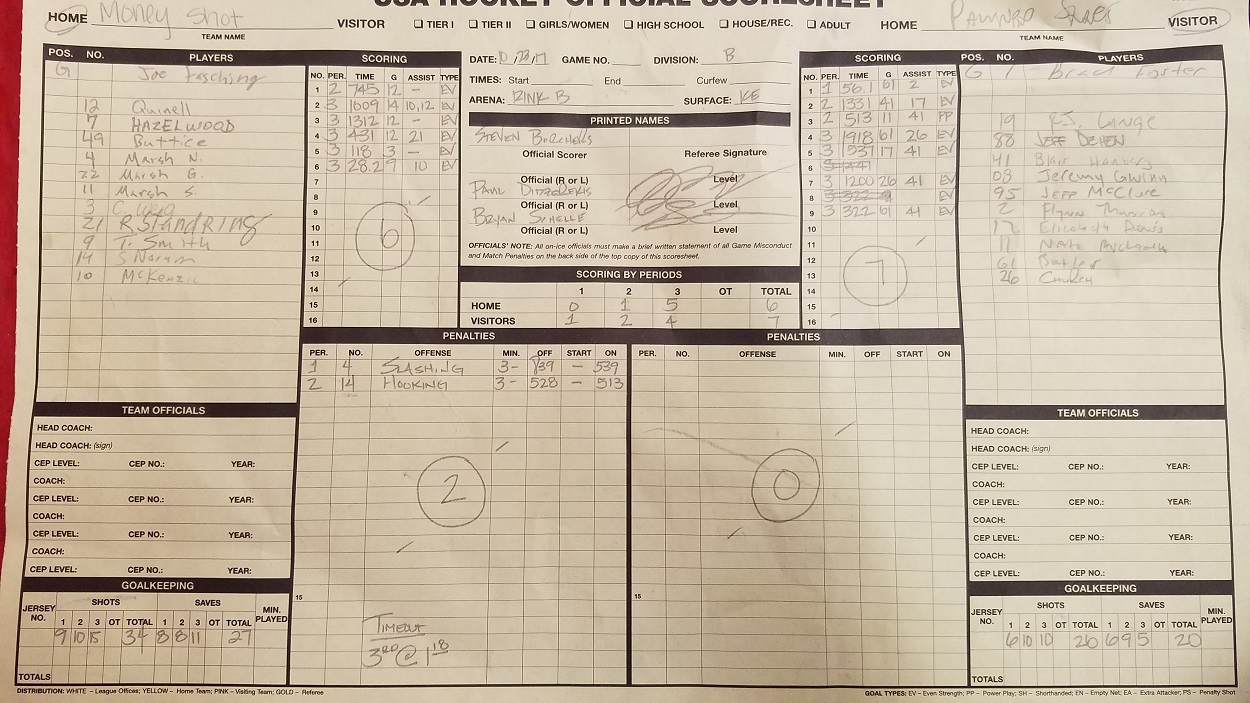 USA HOCKEY OFFICIAL SCORESHEET
HOME Money Shot VISITOR
TEAM NAME
☐ TIER I ☐ TIER II ☐ GIRLS/WOMEN ☐ HIGH SCHOOL ☐ HOUSE/REC. ☐ ADULT
HOME VISITOR
TEAM NAME
POS. NO. PLAYERS
G Joe Fasching
12 Quinell
7 HAZELWOOD
49 Buttice
4 Marsh N.
22 Marsh G.
11 Marsh S.
3
21 R Standring
9 T. Smith
14 S Norum
10 McKenzie
SCORING
NO. PER. TIME G ASSIST TYPE
1 2 745 12 - EV
2 3 1609 14 10,12 EV
3 3 1312 12 - EV
4 3 431 12 21 EV
5 3 118 3 - EV
6 3 28.2 9 10 EV
7
8
9
10
11
12
13
14
15
16
6
DATE: GAME NO. DIVISION: B
TIMES: Start End Curfew
ARENA: RINK B SURFACE: ICE
PRINTED NAMES
STEVEN
Official Scorer Referee Signature
Official (R or L) Level
PAUL
Official (R or L) Level
BRYAN SCHELLE
Official (R or L) Level
OFFICIALS' NOTE: All on-ice officials must make a brief written statement of all Game Misconduct
and Match Penalties on the back side of the top copy of this scoresheet.
SCORING BY PERIODS
1 2 3 OT TOTAL
HOME 0 1 5 6
VISITORS 1 2 4 7
SCORING
NO. PER. TIME G ASSIST TYPE
1 1 56.1 61 2 EV
2 2 1331 41 17 EV
3 2 513 11 41 PP
4 3 1918 61 26 EV
5 3 1537 17 41 EV
6 3 1447
7 3 1200 26 41 EV
8 3 322 EV
9 3 322 61 41 EV
10
11
12
13
14
15
16
7
POS. NO. PLAYERS
G 1 Brad Foster
19
88 JEFF DEHEN
41 Blair
08 Jeremy Gwinn
95 JEFF McClure
2 Flynn
17 Elizabeth Davis
11 Nate
61 Butler
26
PENALTIES
PER. NO. OFFENSE MIN. OFF START ON
1 4 SLASHING 3- 839 - 539
2 14 HOOKING 3- 528 - 513
2
15
TIMEOUT
3RD @ 1 18
PENALTIES
PER. NO. OFFENSE MIN. OFF START ON
0
15
TEAM OFFICIALS
HEAD COACH:
HEAD COACH: (sign)
CEP LEVEL: CEP NO.: YEAR:
COACH:
CEP LEVEL: CEP NO.: YEAR:
COACH:
CEP LEVEL: CEP NO.: YEAR:
COACH:
CEP LEVEL: CEP NO.: YEAR:
GOALKEEPING
JERSEY NO. SHOTS SAVES MIN. PLAYED
1 2 3 OT TOTAL 1 2 3 OT TOTAL
9 10 15 34 8 8 11 27
TOTALS
TEAM OFFICIALS
HEAD COACH:
HEAD COACH: (sign)
CEP LEVEL: CEP NO.: YEAR:
COACH:
CEP LEVEL: CEP NO.: YEAR:
COACH:
CEP LEVEL: CEP NO.: YEAR:
COACH:
CEP LEVEL: CEP NO.: YEAR:
GOALKEEPING
JERSEY NO. SHOTS SAVES MIN. PLAYED
1 2 3 OT TOTAL 1 2 3 OT TOTAL
6 10 10 26 6 9 5 20
TOTALS
DISTRIBUTION: WHITE – League Offices; YELLOW – Home Team; PINK – Visiting Team; GOLD – Referee
GOAL TYPES: EV – Even Strength; PP – Power Play; SH – Shorthanded; EN – Empty Net; EA – Extra Attacker; PS – Penalty Shot